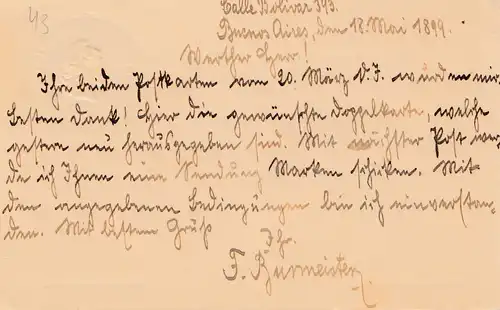 43
Calle Bolivar 393.
Buenos Aires, den 18. Mai 1899.
Werther Herr!
Ihre beiden Postkarten vom 20. März d. J. wurden mir.
Besten Dank! Hier die gewünschte Doppelkarte, welche
gestern neu herausgegeben sind. Mit nächster Post wer-
de ich Ihnen eine Sendung Marken schicken. Mit
den angegebenen Bedingungen bin ich einverstan-
den. Mit bestem Gruß
Ihr.
F. Burmeister